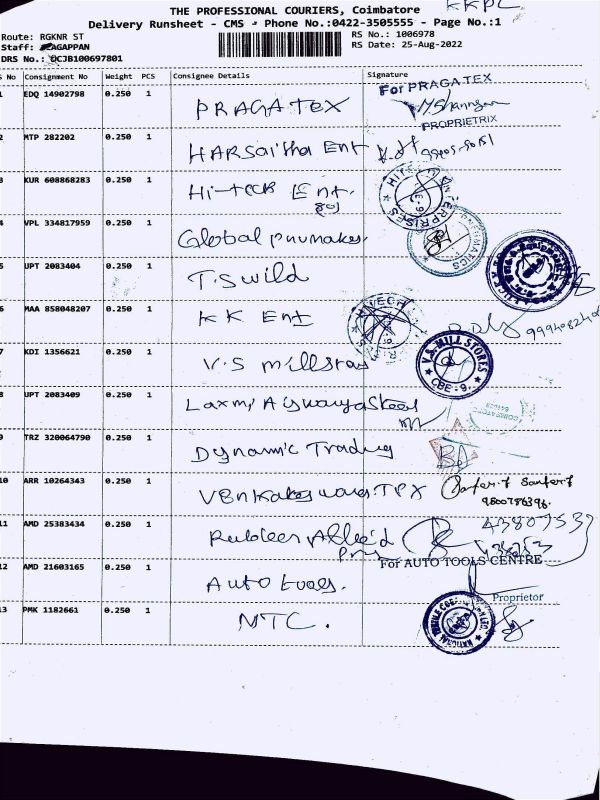 KKPL
THE PROFESSIONAL COURIERS, Coimbatore
Delivery Runsheet - CMS - Phone No.:0422-3505555 - Page No.:1
Route: RGKNR ST
RS No.: 1006978
Staff: AGAPPAN
RS Date: 25-Aug-2022
DRS No.: DCJB100697801
S No Consignment No Weight PCS Consignee Details Signature
1 EDQ 14902798 0.250 1 PRAGATEX For PRAGATEX
PROPRIETRIX
2 MTP 282202 0.250 1 HARSaitha Ent
3 KUR 608868283 0.250 1 Hi-teck Ent.
4 VPL 334817959 0.250 1 Global pnumakes.
5 UPT 2083404 0.250 1 T.S wild
6 MAA 858048207 0.250 1 KK Ent
7 KDI 1356621 0.250 1 V.S millstores V.S. MILL STORES CBE-9.
8 UPT 2083409 0.250 1 Laxmi Aiswarya Steel
9 TRZ 320064790 0.250 1 Dynamic Trading
10 ARR 10264343 0.250 1 Venkateswara TPX
9800786396.
11 AMD 25383434 0.250 1 Rubber Allied
12 AMD 21603165 0.250 1 Auto tools. For AUTO TOOLS CENTRE
Proprietor
13 PMK 1182661 0.250 1 NTC.